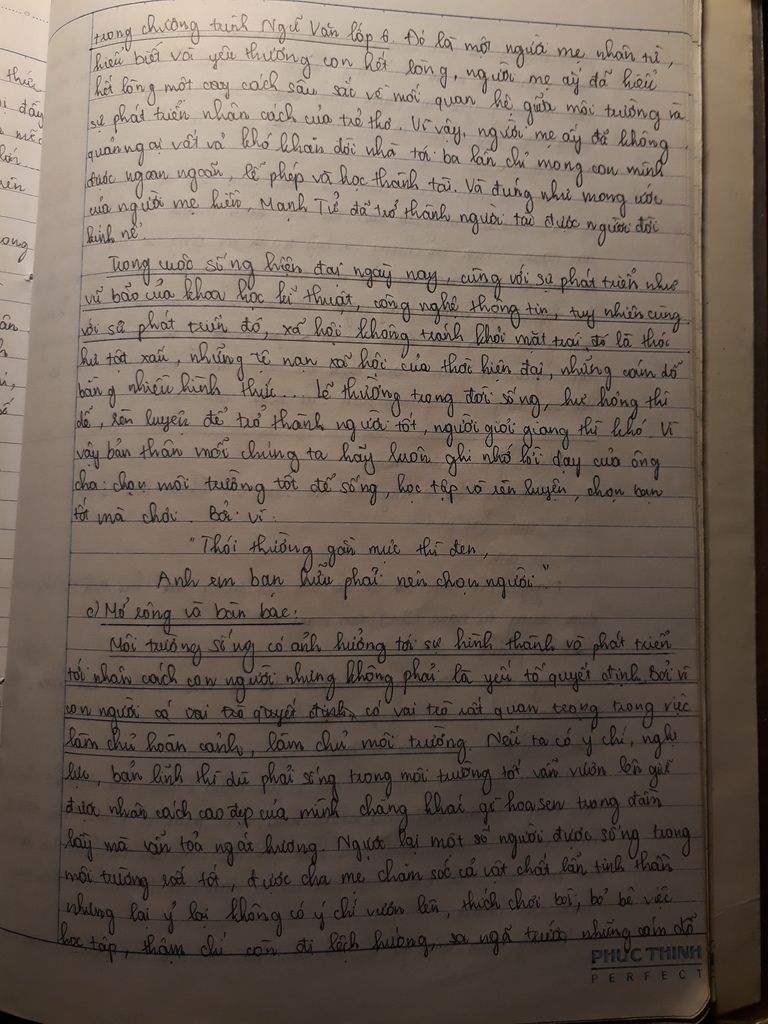 trong chương trình Ngữ Văn lớp 6. Đó là một người mẹ nhân từ,
hiểu biết và yêu thương con hết lòng, người mẹ ấy đã hiểu
hết lòng một cách sâu sắc về mối quan hệ giữa môi trường và
sự phát triển nhân cách của trẻ thơ. Vì vậy, người mẹ ấy đã không
quản ngại vất vả khó khăn dời nhà tới ba lần chỉ mong con mình
được ngoan ngoãn, lễ phép và học thành tài. Và đúng như mong ước
của người mẹ hiền, Mạnh Tử đã trở thành người tài được người đời
kính nể.
Trong cuộc sống hiện đại ngày nay, cùng với sự phát triển như
vũ bão của khoa học kĩ thuật, công nghệ thông tin, tuy nhiên cùng
với sự phát triển đó, xã hội không tránh khỏi mặt trái, đó là thói
hư tật xấu, những tệ nạn xã hội của thời hiện đại, những cám dỗ
bằng nhiều hình thức... Lẽ thường trong đời sống, hư hỏng thì
dễ, rèn luyện để trở thành người tốt, người giỏi giang thì khó. Vì
vậy bản thân mỗi chúng ta hãy luôn ghi nhớ lời dạy của ông
cha: chọn môi trường tốt để sống, học tập và rèn luyện, chọn bạn
tốt mà chơi. Bởi vì:
"Thói thường gần mực thì đen,
Anh em bạn hữu phải nên chọn người"
c) Mở rộng và bàn bạc:
Môi trường sống có ảnh hưởng tới sự hình thành và phát triển
tới nhân cách con người nhưng không phải là yếu tố quyết định. Bởi vì
con người có vai trò quyết định, có vai trò rất quan trọng trong việc
làm chủ hoàn cảnh, làm chủ môi trường. Nếu ta có ý chí, nghị
lực, bản lĩnh thì dù phải sống trong môi trường tốt vẫn vươn lên giữ
được nhân cách cao đẹp của mình chẳng khác gì hoa sen trong đầm
lầy mà vẫn tỏa ngát hương. Ngược lại một số người được sống trong
môi trường rất tốt, được cha mẹ chăm sóc cả vật chất lẫn tinh thần
nhưng lại ỷ lại không có ý chí vươn lên, thích chơi bời, bỏ bê việc
học tập, thậm chí còn đi lệch hướng, sa ngã trước những cám dỗ
PHUC THINH
PERFECT